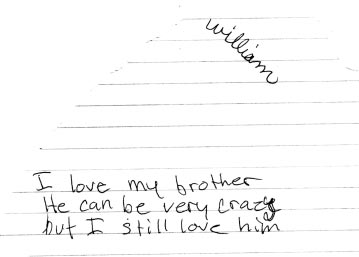 william
I love my brother
He can be very crazy
but I still love him